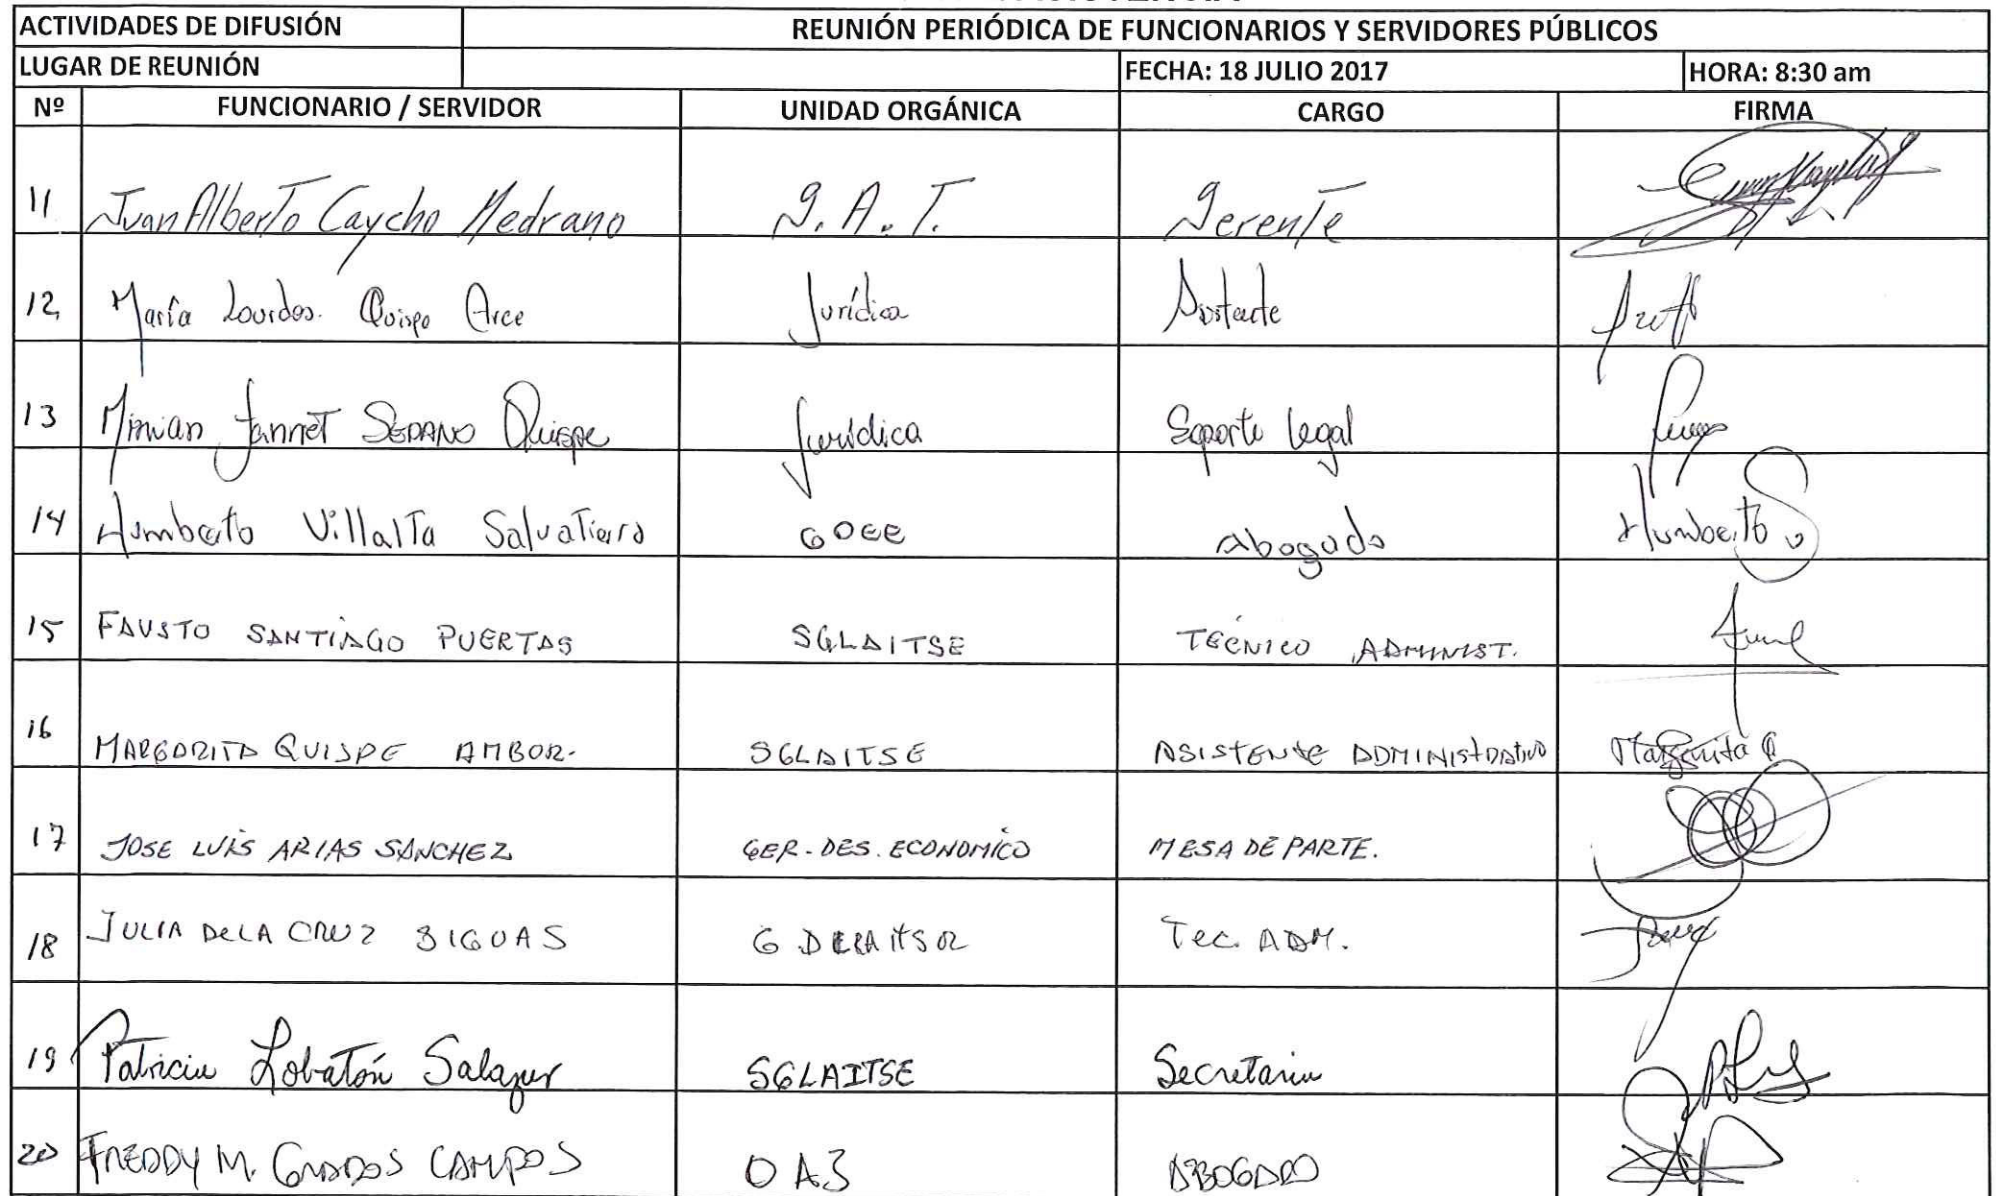 ACTIVIDADES DE DIFUSIÓN REUNIÓN PERIÓDICA DE FUNCIONARIOS Y SERVIDORES PÚBLICOS
LUGAR DE REUNIÓN FECHA: 18 JULIO 2017 HORA: 8:30 am
Nº FUNCIONARIO / SERVIDOR UNIDAD ORGÁNICA CARGO FIRMA
11 Juan Alberto Caycho Medrano G.A.T. Gerente
12 María Lourdes. Quispe Arce Jurídica Asistente
13 Mirian Jannet SEDANO Quispe Jurídica Soporte Legal
14 Humberto Villalta Salvatierra Abogado Humberto
15 FAUSTO SANTIAGO PUERTAS SGLAITSE TECNICO ADMINIST.
16 MARGARITA QUISPE AMBOR. SGLAITSE ASISTENTE ADMINISTRATIVO Margarita Q
17 JOSE LUIS ARIAS SANCHEZ GER. DES. ECONOMICO MESA DE PARTE.
18 JULIA DE LA CRUZ SIGUAS TEC. ADM.
19 Patricia Lobatón Salazar SGLAITSE Secretaria
20 FREDDY M. GRADOS CAMPOS OAJ ABOGADO